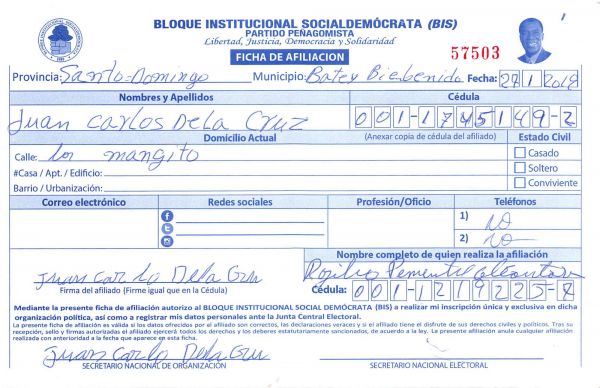 BLOQUE INSTITUCIONAL SOCIALDEMÓCRATA (BIS)
PARTIDO PEÑAGOMISTA
Libertad, Justicia, Democracia y Solidaridad
FICHA DE AFILIACION
57503
Provincia: Santo-Domingo Municipio: Batey Bienbenido Fecha: 27/1/2019
Nombres y Apellidos Cédula
Juan Carlos De La Cruz 001-1745149-2
Domicilio Actual (Anexar copia de cédula del afiliado) Estado Civil
Calle: los mangito Casado
#Casa / Apt. / Edificio: Soltero
Barrio / Urbanización: Conviviente
Correo electrónico Redes sociales Profesión/Oficio Teléfonos
1) No
2) No
Nombre completo de quien realiza la afiliación
Juan Carlo Dela Cru Pementel
Firma del afiliado (Firme igual que en la Cédula) Cédula: 001-1219225-8
Mediante la presente ficha de afiliación autorizo al BLOQUE INSTITUCIONAL SOCIAL DEMÓCRATA (BIS) a realizar mi inscripción única y exclusiva en dicha
organización política, así como a registrar mis datos personales ante la Junta Central Electoral.
La presente ficha de afiliación es válida si los datos ofrecidos por el afiliado son correctos, las declaraciones veraces y si el afiliado tiene el disfrute de sus derechos civiles y políticos. Tras su
recepción, sello y firmas autorizadas el afiliado ejercerá todos los derechos y los deberes estatutariamente sancionados, de acuerdo a la ley. La presente afiliación anula cualquier afiliación
realizada con anterioridad a la fecha que aparece en esta ficha.
Juan Carlo Dela Cru
SECRETARIO NACIONAL DE ORGANIZACIÓN SECRETARIO NACIONAL ELECTORAL